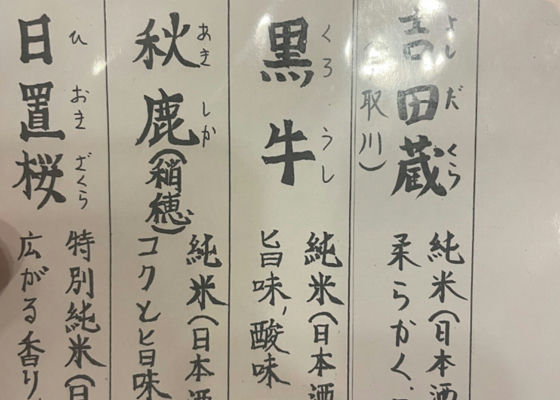 吉田蔵
よしだくら
取川）
純米（日本酒
柔らかく、
黒牛
くろうし
純米（日本酒
旨味、酸味
秋鹿（稲穂）
あきしか
純米（日本
コクと旨味
日置桜
ひおきざくら
特別純米（日
広がる香り